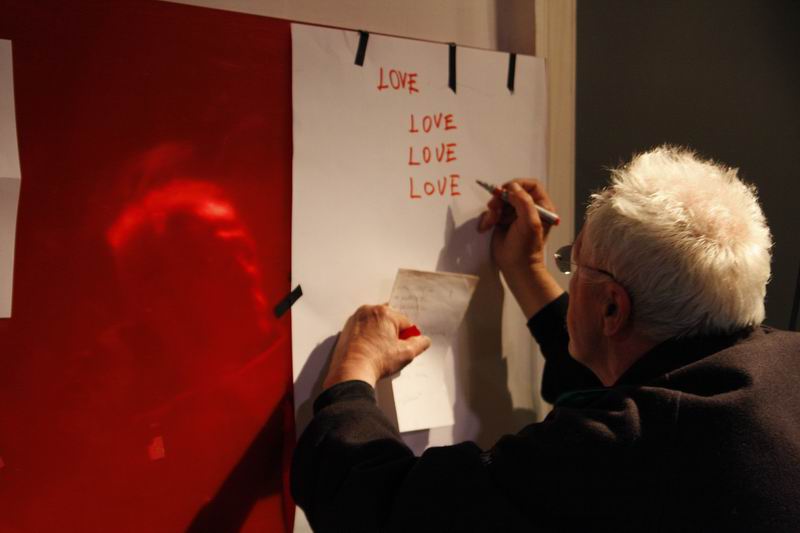 LOVE
LOVE
LOVE
LOVE